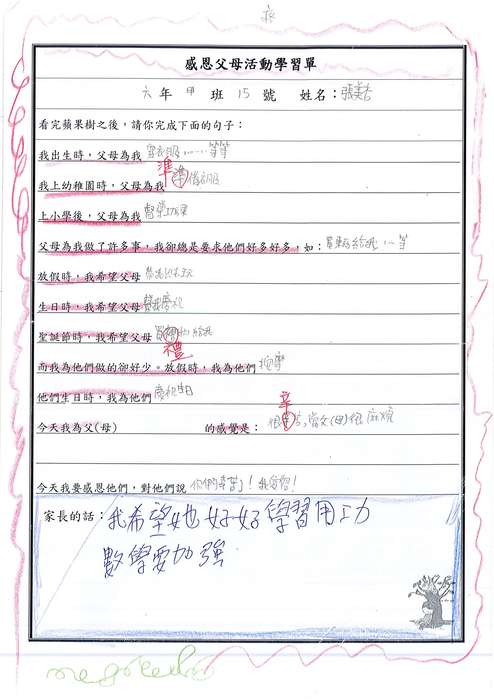 感恩父母活動學習單
六年甲班15號 姓名:張美杏
看完蘋果樹之後,請你完成下面的句子:
我出生時,父母為我 買衣服……等等
準
我上幼稚園時,父母為我 準備衣服
上小學後,父母為我 督學功課
父母為我做了許多事,我卻總是要求他們好多好多,如: 買東西給我…等
放假時,我希望父母 帶我出去玩
生日時,我希望父母 幫我慶祝
聖誕節時,我希望父母 買禮物給我
禮
而我為他們做的卻好少。放假時,我為他們 按摩
他們生日時,我為他們 慶祝生日
辛
今天我為父(母) 的感覺是: 很辛苦,當父(母)很麻煩
今天我要感恩他們,對他們說 你們辛苦了!我愛您!
家長的話:我希望她好好學習用功
數學要加強